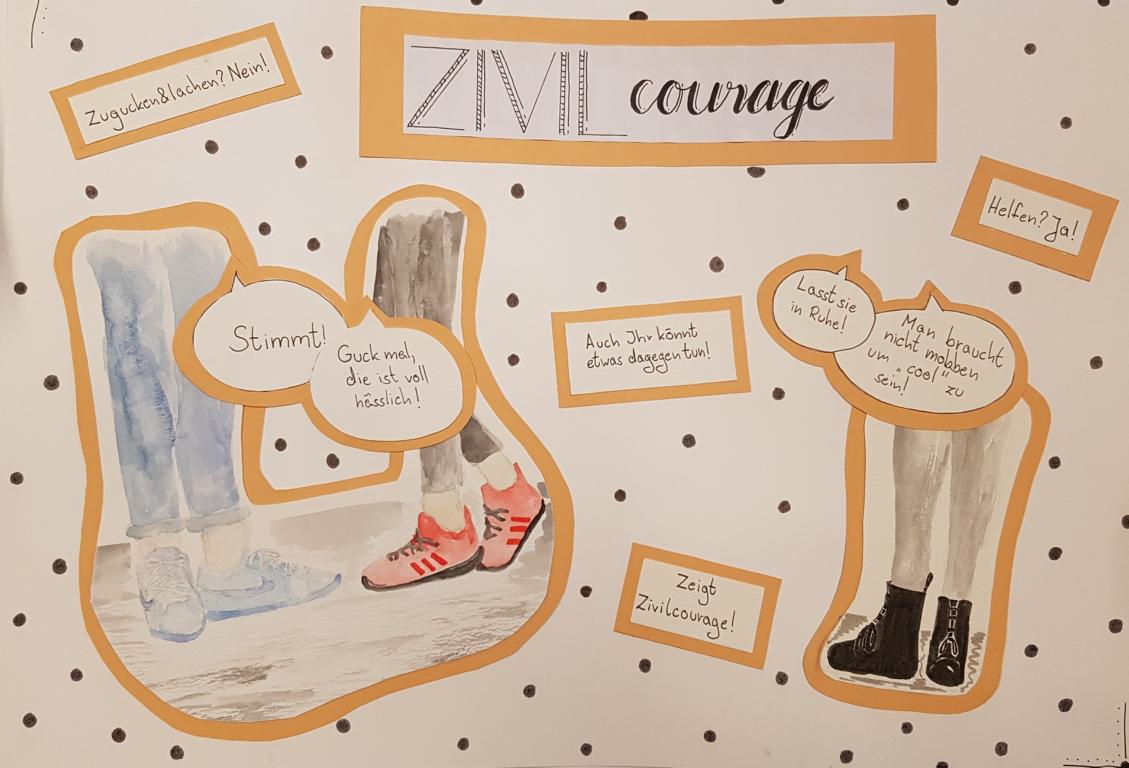 ZIVIL courage
Zugucken&lachen? Nein!
Helfen? Ja!
Stimmt!
Guck mal,
die ist voll
hässlich!
Auch Ihr könnt
etwas dagegen tun!
Lasst sie
in Ruhe!
Man braucht
nicht mobben
um "cool" zu
sein!
Zeigt
Zivilcourage!